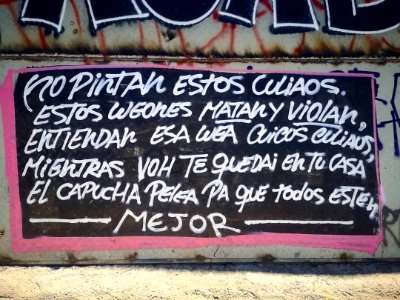 NO PINTAN ESTOS CULIAOS.
ESTOS WEONES MATAN Y VIOLAN,
ENTIENDAN ESA WEA CUICOS CULIAOS,
MIENTRAS VOH TE QUEDAI EN TU CASA
EL CAPUCHA PELEA PA QUE TODOS ESTEN
MEJOR